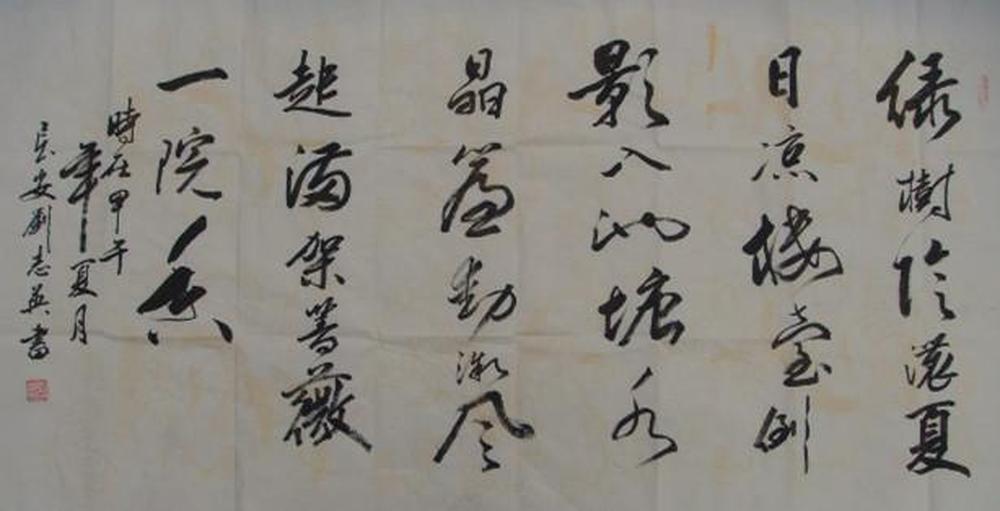 緑樹陰濃夏
日凉樓臺倒
影入池塘水
晶簾動微風
起滿架薔薇
一院香
時在甲午
年夏月
安劉志英書